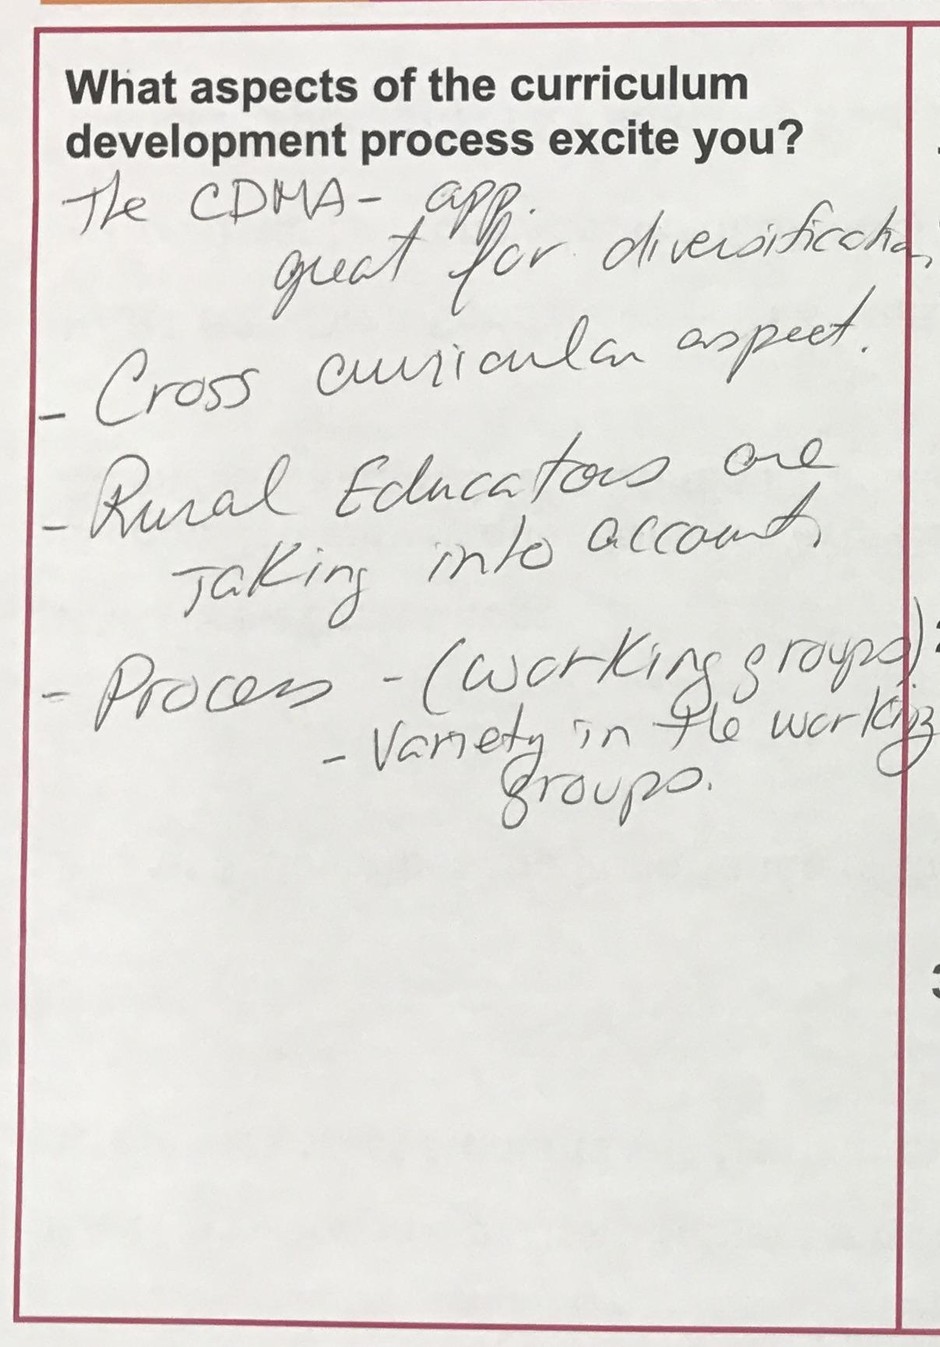 What aspects of the curriculum
development process excite you?
The CDMA - app.
great for diversification
- Cross curricular aspect.
- Rural Educators are
Taking into account,
- Process - (working groups)
- Variety in the working
groups.